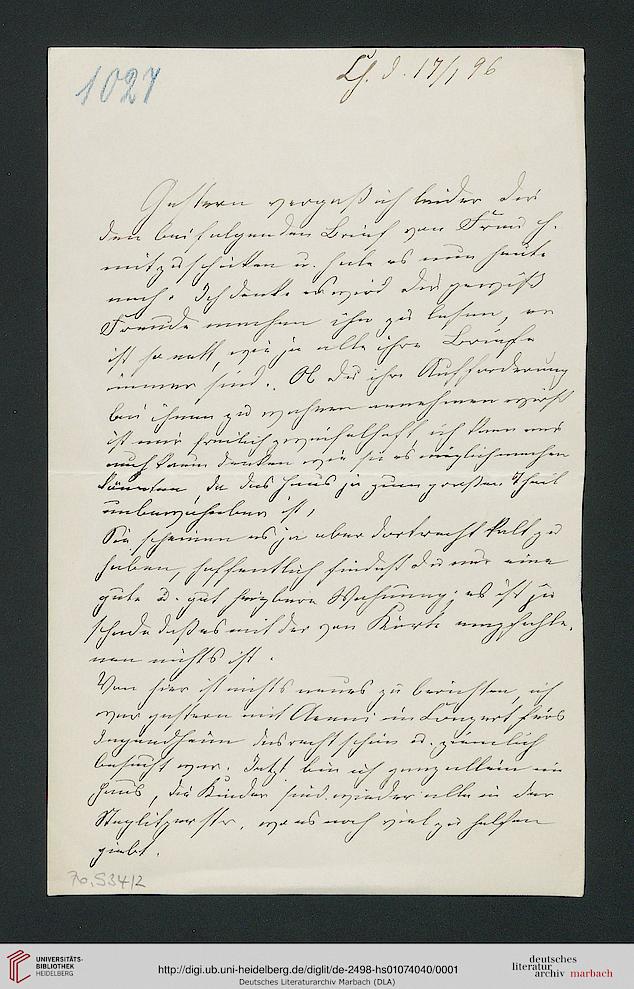 1027
Ch. d. 17/1 96
Gestern vergaß ich leider Dir
den beifolgenden Brief von Frau H.
mitzuschicken u. hole es nun heute
nach. Ich denke es wird Dir gewiß
Freude machen ihn zu lesen, er
ist so nett, wie ja alle ihre Briefe
immer sind. Ob Du ihre Aufforderung
bei ihnen zu wohnen annehmen wirst
ist mir freilich zweifelhaft, ich kann mir
auch kaum denken wie sie es möglich machen
könnten, da das Haus ja zum großen Theil
unbewohnbar ist,
Sie scheinen es ja aber dort recht kalt zu
haben, hoffentlich findest Du nur eine
gute u. gut heizbare Wohnung; es ist zu
schade daß es mit der von Körte empfohle-
nen nichts ist.
Von hier ist nichts neues zu berichten, ich
war gestern mit Aenni im Conzert fürs
Jugendheim das recht schön u. ziemlich
besucht war. Jetzt bin ich ganz allein im
Haus, die Kinder sind wieder alle in der
Steglitzerstr. wo es noch viel zu helfen
giebt.
70.534/2
UNIVERSITÄTS-
BIBLIOTHEK
HEIDELBERG
http://digi.ub.uni-heidelberg.de/diglit/de-2498-hs01074040/0001
Deutsches Literaturarchiv Marbach (DLA)
deutsches
literatur
archiv marbach